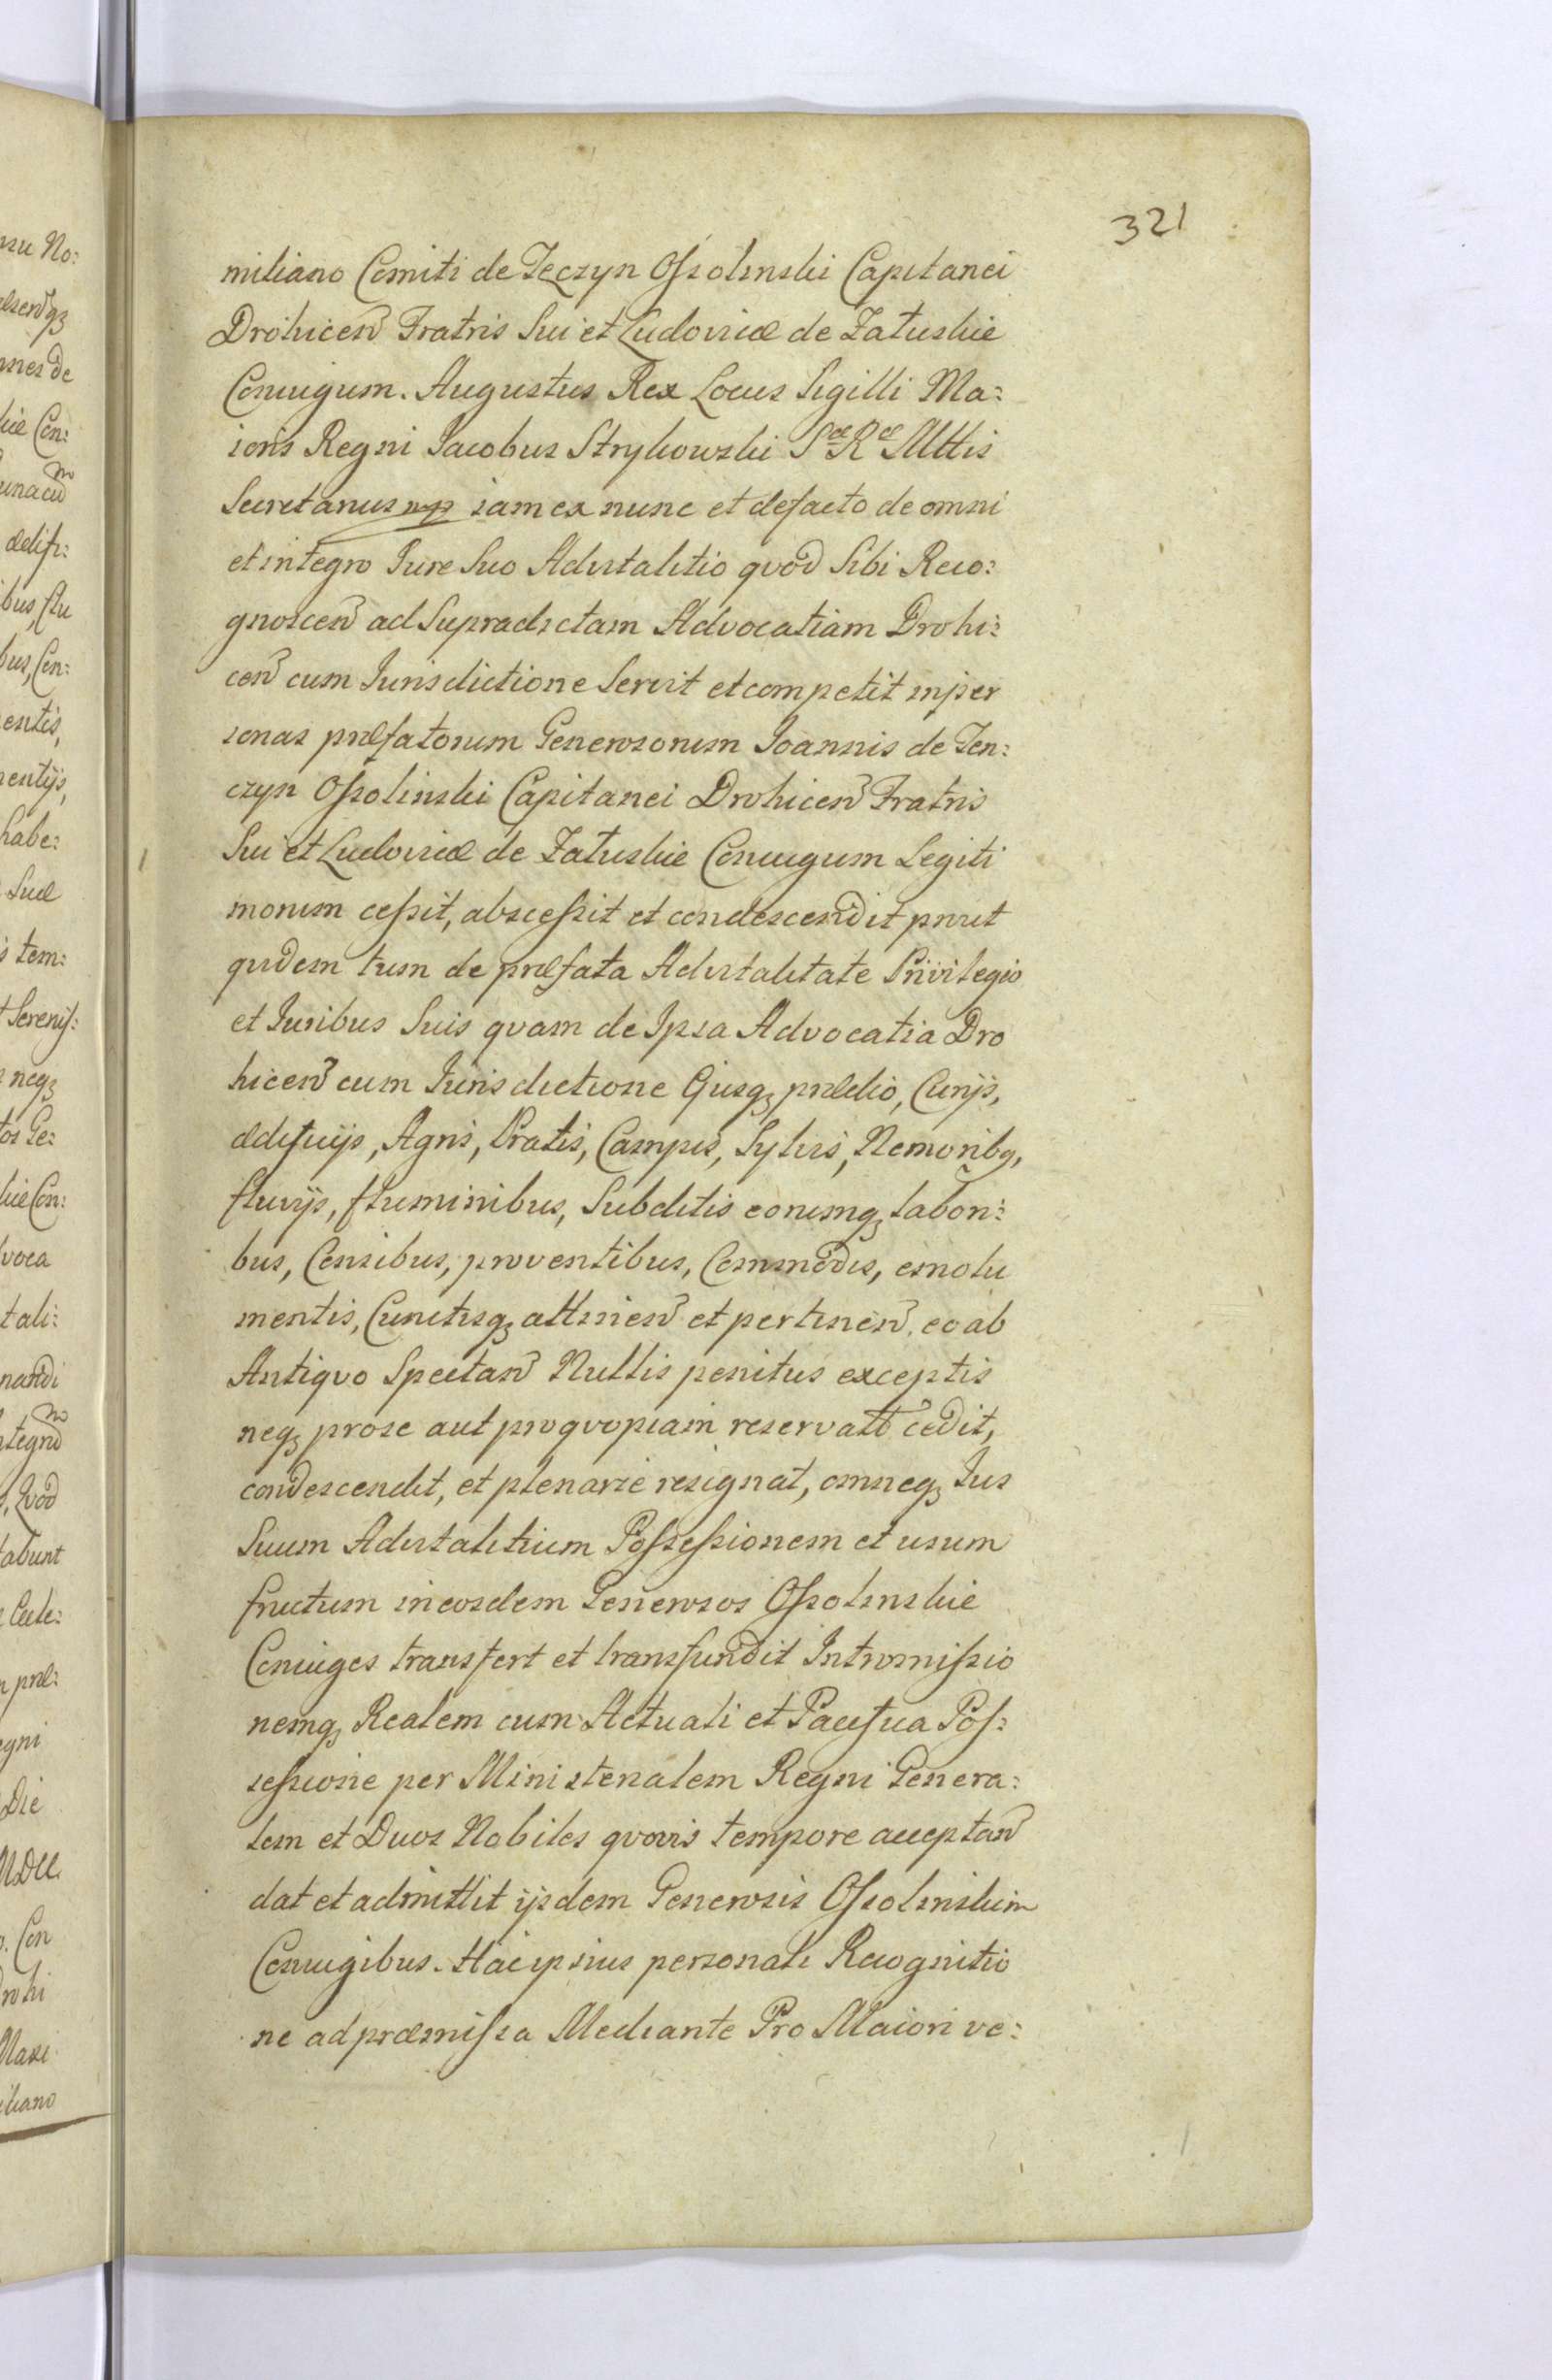 321
miliano Comiti de Teczyn Ossolinski Capitanei
Drohicen Fratris Sui et Ludovicæ de Załuskie
Coniugum. Augustus Rex Locus Sigilli Ma:
ioris Regni Iacobus Strykowski Sæ Ræ Mttis
Secretarius mp iam ex nunc et defacto de omni
et integro Iure Suo Advitalitio qvod Sibi Reco:
gnoscen ad Supradictam Advocatiam Drohi:
cen cum Iurisdictione Servit et competit in per
sonas præfatorum Generosorum Ioannis de Ten:
czyn Ossolinski Capitanei Drohicen Fratris
Sui et Ludovicæ de Załuskie Coniugum Legiti
morum cessit, abscessit et condescendit prout
qvidem tum de præfata Advitalitate Privilegio
et Iuribus Suis qvam de Ipsa Advocatia Dro
hicen cum Iurisdictione Ejusq; prædio, Curijs,
ædificijs, Agris, Pratis, Campis, Sylvis, Nemoribq,
fluvijs, fluminibus, Subditis eorumq; labori:
bus, Censibus, proventibus, Commodis, emolu
mentis, Cunctisq; attinen et pertinen. eo ab
Antiqvo Spectan Nullis penitus exceptis
neq; pro se aut pro qvopiam reservatt cedit,
condescendit, et plenarie resignat, omneq; Ius
Suum Advitalitium Possessionem et usum
fructum in eosdem Generosos Ossolinskie
Coniuges transfert et transfundit Intromissio
nemq; Realem cum Actuali et Pacifica Pos:
sessione per Ministerialem Regni Genera:
lem et Duos Nobiles qvovis tempore acceptan
dat et admittit ijsdem Generosis Ossolinskim
Coniugibus. Hac ipsius personali Recognitio
ne ad præmissa Mediante Pro Maiori ve: